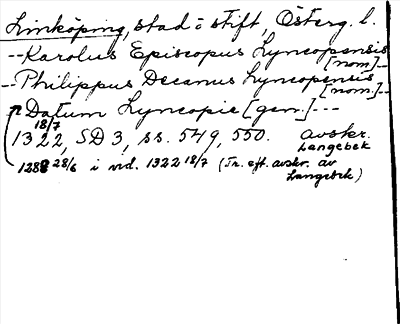 Linköping, stad o stift, Österg. l.
--Karolus Episcopus Lyncopensis
[nom]--
--Philippus Decanus Lyncopensis
[nom.]--
Datum Lyncopie [gen.]---
18/7
1322, SD 3, ss. 549, 550. avskr.
Langebek
1288 28/6 i vid. 1322 18/7 (Tr. eft. avskr. av
Langebek)